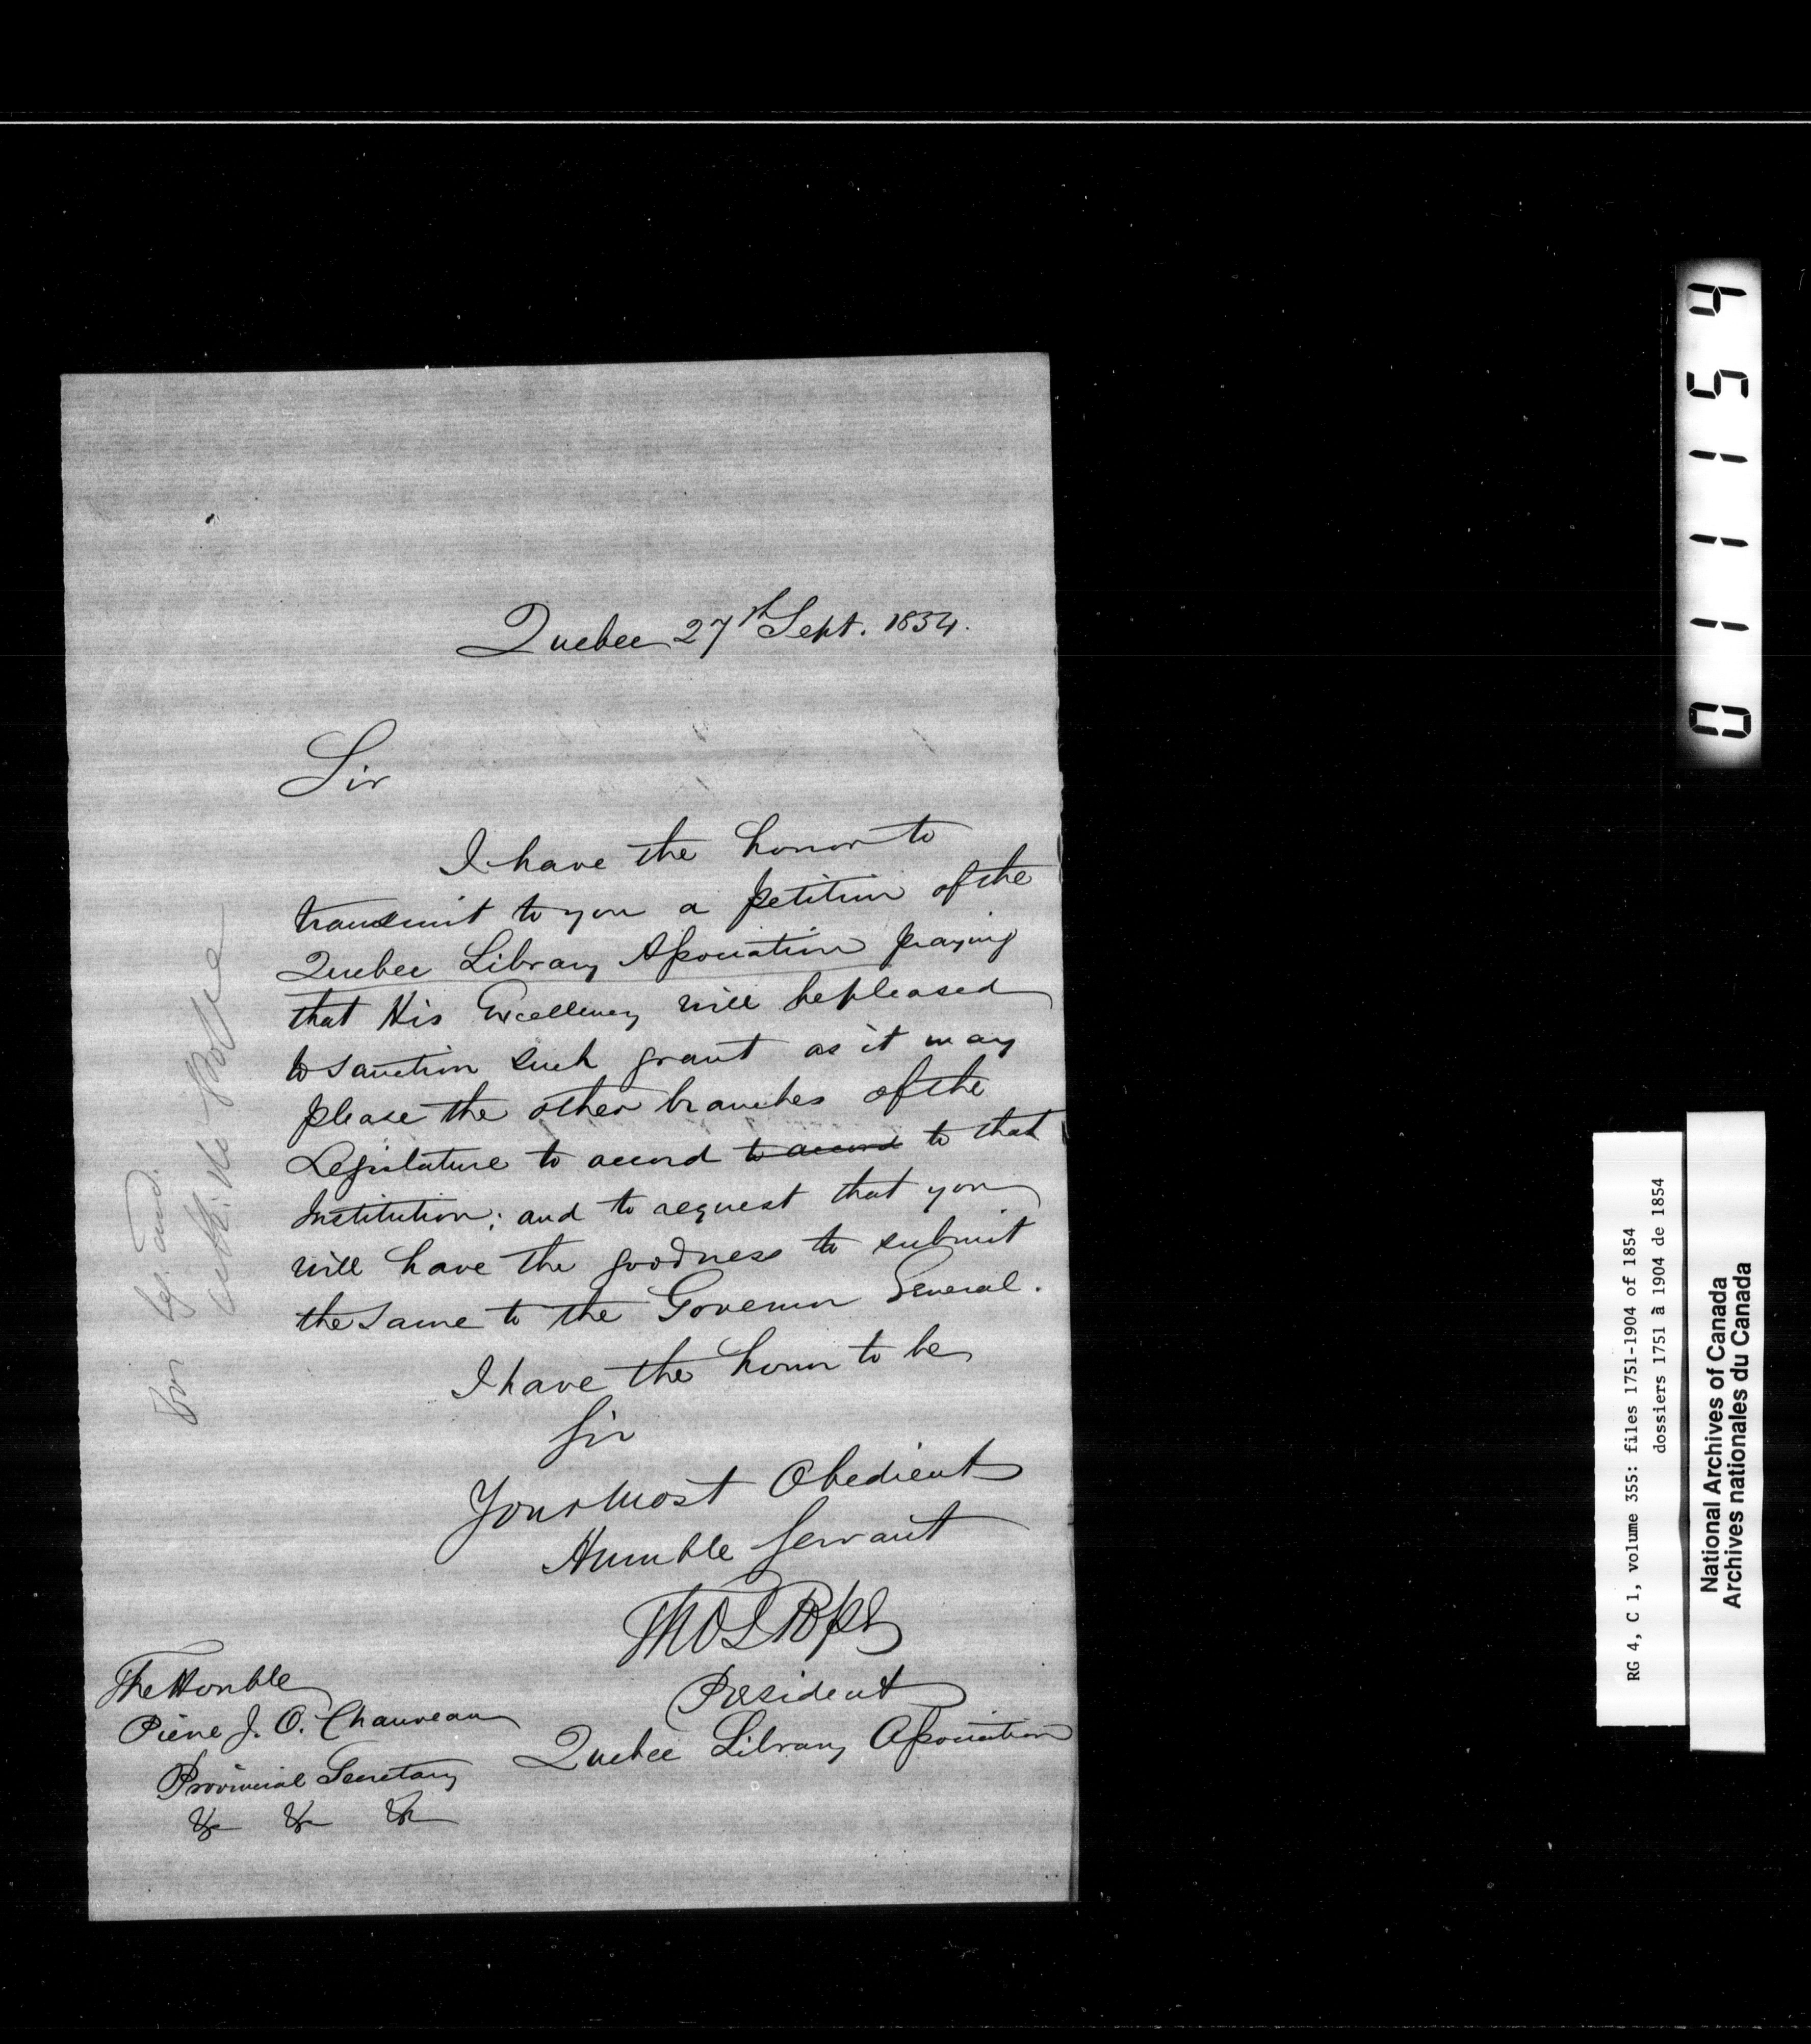 Quebec 27th Sept. 1854.
Sir
I have the honor to
transmit to you a petition of the
Quebec Library Association praying
that His Excellency will be pleased
to sanction such grant as it may
please the other branches of the
Legislature to accord to accord to that
Institution; and to request that you
will have the goodness to submit
the same to the Governor General.
I have the honor to be
Sir
Your Most Obedient
Humble Servant
Thos Pope
President
Quebec Library Association
The Honble
Pierre J. O. Chauveau
Provincial Secretary
&c &c &c
011154
RG 4, C 1, volume 355: files 1751-1904 of 1854
dossiers 1751 à 1904 de 1854
National Archives of Canada
Archives nationales du Canada